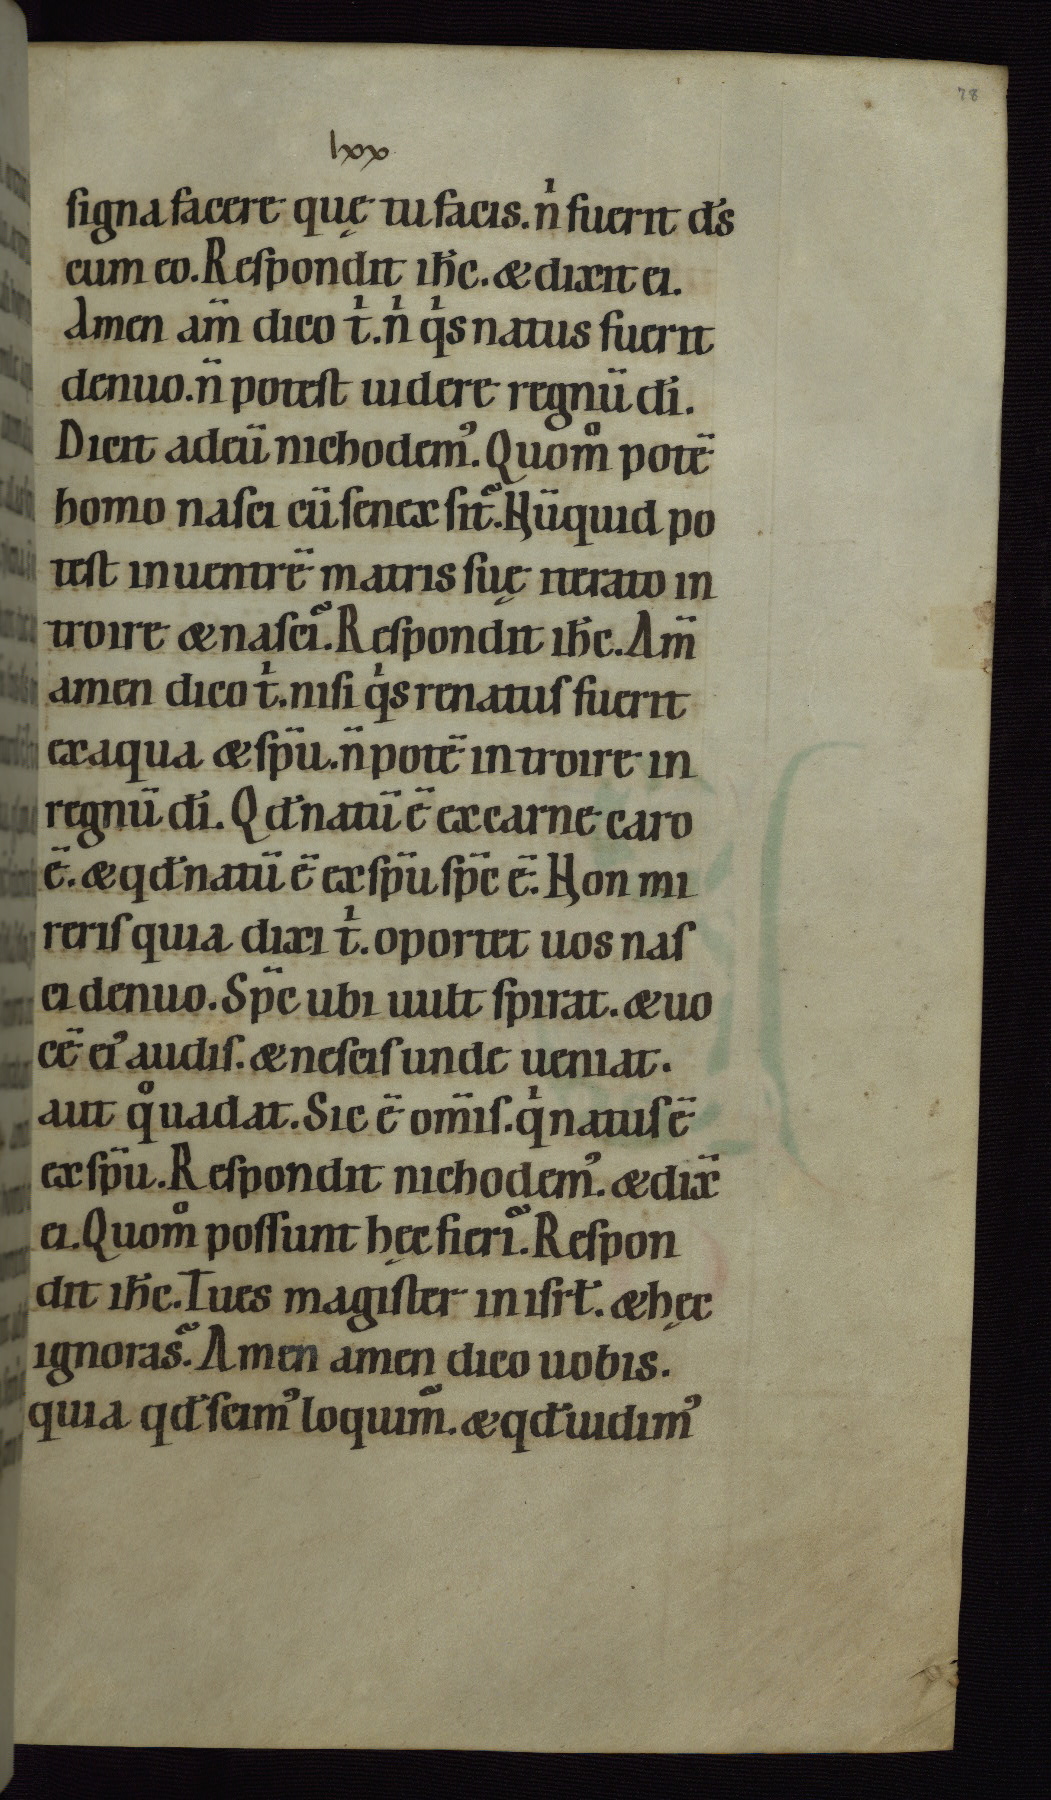 78
lxx
signa facere quę tu facis. nͥ fuerit d̅s
cum eo. Respondit ih̅c. & dixit ei.
Amen am̅ dico tͥ. nͥ qͥs natus fuerit
denuo. n̅ potest uidere regnu̅ di̅.
Dicit ad eu̅ nichodemꝰ. Quom̊ pote̅
homo nasci cu̅ senex sit? Nu̅quid po
test in uentre̅ matris suę iterato in
troire & nasci? Respondit ih̅c. Am̅
amen dico tͥ. nisi qͥs renatus fuerit
ex aqua & sp̅u. n̅ pote̅ introire in
regnu̅ di̅. Qd̅ natu̅ e̅ ex carne caro
e̅. & qd̅ natu̅ e̅ ex sp̅u sp̅c e̅. Non mi
reris quia dixi tͥ. oportet uos nas
ci denuo. Sp̅c ubi uult spirat. & uo
ce̅ eiꝰ audis. & nescis unde ueniat.
aut q̊ uadat. Sic e̅ om̅is. qͥ natus e̅
ex sp̅u. Respondit nichodemꝰ. & dix̅
ei. Quom̊ possunt hęc fieri? Respon
dit ih̅c. Tu es magister in isrł. & hęc
ignoras? Amen amen dico uobis.
quia qd̅ scimꝰ loquim᷑. & qd̅ uidimꝰ